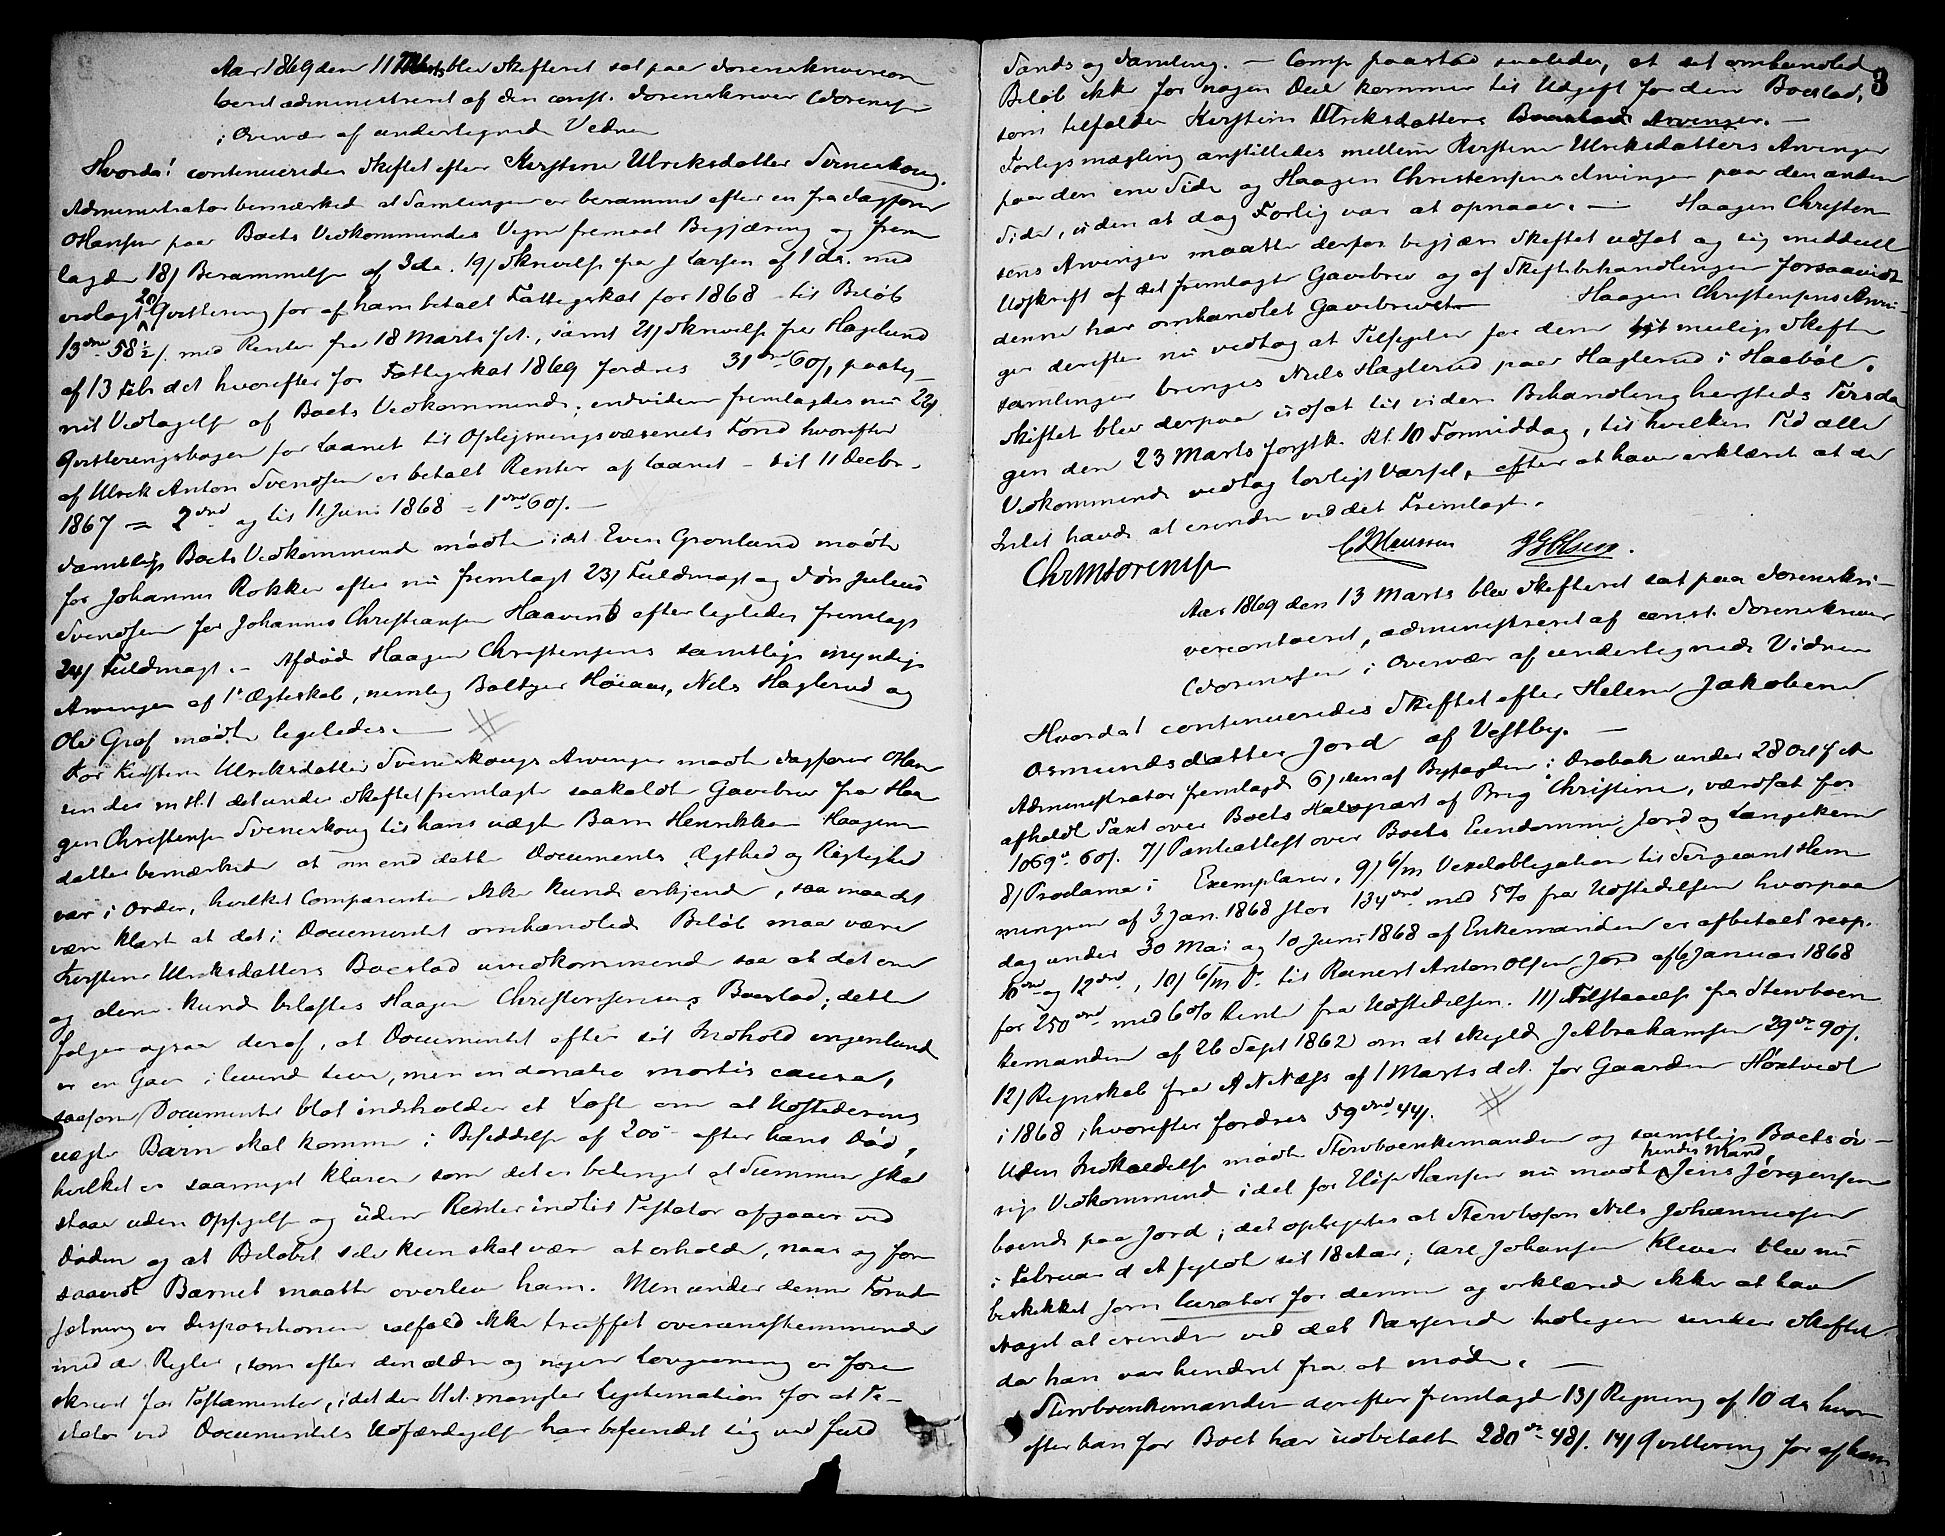 Aar 1869 den 11 Marts blev Skifteret sat paa Sorenskrivercon
toret administreret af den const. Sorenskriver CSorensen
i Overvær af undertegnede Vidner
Hvorda! continueredes Skiftet efter Kirstine Ulriksdatter Svineskoug.
Administrator bemærkede at Samlingen er berammet efter en fra Sagfører
OHansen paa Boets Vedkommendes Vegne fremsat Begjæring og frem
lagde 18/ Berammelse af 3 ds. 19/ Skrivelse fra J Larsen af 1 ds. med
vedlagt 20/ Qvittering for af ham betalt Fattigskat for 1868 til Beløb
13 58½ /. med Renter fra 18 Marts f. A., samt 21/ Skrivelse fra Haglund
af 13 Feb d A hvorefter for Fattigskat 1869 fordres 31 60/, paateg
net Vedtagelse af Boets Vedkommende; endvidere fremlagdes nu 22/
Qvitteringsbogen for Laanet til Oplysningsvæsenets Fond hvorefter
af Ulrik Anton Svendsen er betalt Renter af Laanet til 11 Decbr.
1867 = 2 og til 11 Juni 1868 = 1 60/. —
Samtlige Boets Vedkommende mødte idet Even Grønland mødte
for Johannes Rokker efter nu fremlagt 23/ Fuldmagt og Søn Julius
Svendsen for Johannes Christiansen Haaven efter ligeledes fremlagt
24/ Fuldmagt. — Afdøde Haagen Christensens samtlige myndige
Arvinger af 1ste Ægteskab, nemlig Baltzer Høiaas, Niels Haglerud og
Ole Graf mødte ligeledes. —
For Kirstine Ulriksdatter Svineskougs Arvinger mødte Sagfører OHan
sen der m. H. t. det under Skiftet fremlagte saakaldte Gavebrev fra Haa
gen Christensen Svineskoug til hans uægte Barn Henrikke Haagens
datter bemærkede at om end dette Documents Ægthed og Rigtighed
var i Orden, hvilket Comparenten ikke kunde erkjende, saa maa det
være klart at det i Documentet omhandlede Beløb maa være
Kirstine Ulriksdatters Boeslod uvedkommende saa at det ene
og alene kunde belastes Haagen Christensens Boeslod; dette
følger ogsaa deraf, at Documentet efter sit Indhold ingenlunde
er en Gave i levende Live, men en donatio mortis causa,
saasom Documentet blot indeholder et Løfte om at Udstederens
uægte Barn skal komme i Besiddelse af 200 efter hans Død,
hvilket er saameget klarere som det er betinget at Summen skal
staae uden Opsigelse og uden Renter indtil Testator afgaaer ved
Døden og at Beløbet selv kun skal være at erholde, naar og for
saavidt Barnet maatte overleve ham. Men under denne Forud
sætning er Dispositionen ialfald ikke truffet overensstemmende
med de Regler, som efter den ældre og nyere Lovgivning er fore
skrevet for Testamenter, idet der bl. A. mangler Legitimation for at Te-
stator ved Documentets Udfærdigelse har befundet sig ved fuld
3
Sands og Samling. — Comp. paastod saaledes, at det omhandlede
Beløb ikke for nogen Deel kommer til Udgift for den Boeslod,
som tilfalder Kirstine Ulriksdatters Arvinger. —
Forligsmægling anstilledes mellem Kirstine Ulriksdatters Arvinger
paa den ene Side og Haagen Christensens Arvinger paa den anden
Side, uden at dog Forlig var at opnaae. — Haagen Christen
sens Arvinger maatte derfor begjære Skiftet udsat og sig meddeelt
Udskrift af det fremlagte Gavebrev og af Skiftebehandlingen forsaavidt
denne har omhandlet Gavebrevet. — Haagen Christensens Arvin-
ger derefter nu vedtog at Tilsigelse for dem til mulige Skifte
samlinger bringes Niels Haglerud paa Haglerud i Haabøl.
Skiftet blev derpaa udsat til videre Behandling hersteds Tirsda
gen den 23 Marts førstk. Kl. 10 Formiddag, til hvilken Tid alle
Vedkommende vedtog lovligt Varsel, efter at have erklæret at de
Intet havde at erindre ved det Fremlagte.
Chr M Sorensen
Aar 1869 den 13 Marts blev Skifteret sat paa Sorenskri-
vercontoret, administreret af const. Sorenskriver
CSorensen i Overvær af undertegnede Vidner
Hvorda! continueredes Skiftet efter Helene Jakobine
Osmundsdatter Jord af Vestby. —
Administrator fremlagde 6/ den af Byfogden i Drøbak under 28 Oct f A
afholdt Taxt over Boets Halvpart af Brig Christine, værdsat for
1069 60/. 7/ Panteattest over Boets Eiendomme Jord og Langekern
8/ Proclama i Exemplarer, 9/ 6/m Vexelobligation til Sergeant Hem
mingsen af 3 Jan. 1868 stor 134 med 5% fra Udstedelsen hvorpaa
dag under 30 Mai og 10 Juni 1868 af Enkemanden er afbetalt resp.
10 og 12, 10/ 6/m Do til Reinert Anton Olsen Jord af 6 Januar 1868
for 250 med 6% Rente fra Udstedelsen. 11/ Tilstaaelse fra Stervboen
kemanden af 26 Sept 1862 om at skylde J Abrahamsen 29 90/.
12/ Regnskab fra A N Næss af 1 Marts d. A. for Gaarden Hostvedt
i 1868, hvorefter fordres 59 44/.
Uden Indkaldelse mødte Stervboenkemanden og samtlige Boets øv-
rige Vedkommende idet for Elise Hansen nu mødte hendes Mand Jens Jørgensen
boende paa Jord; det oplystes at Stervbosøn Nils Johannesen
i Februar d A fyldte sit 18de Aar; Carl Johansen Klever blev nu
beskikket som Curator for denne og erklærede ikke at have
Noget at erindre ved det Passerede tidligere under Skiftet
da han var hindret fra at møde. —
Stervboenkemanden derefter fremlagde 13/ Regning af 10 ds hvor
efter han for Boet har udbetalt 280 48/. 14/ Qvittering for af ham